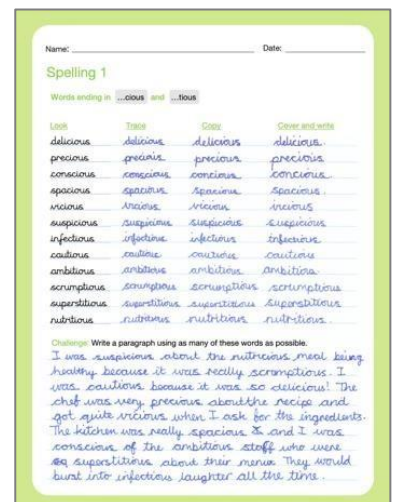 Name: Date:
Spelling 1
Words ending in ...cious and ...tious
Look Trace Copy Cover and write
delicious delicious delicious delicious.
precious precious precious precious
conscious conscious concious concious
spacious spacious spacious spacious.
vicious vicious vicious vicious
suspicious suspicious suspicious suspicious
infectious infectious infectious infectious
cautious cautious cautious cautious
ambitious ambitious ambitious ambitious
scrumptious scrumptious scrumptious scrumptious
superstitious superstitious superstitious superstitious
nutritious nutritious nutritious nutritious.
Challenge: Write a paragraph using as many of these words as possible.
I was suspicious about the nutricious meal being
healthy because it was really scromptious. I
was cautious because it was so delicious! The
chef was very precious about the recipe and
got quite vicious when I ask for the ingredients.
The kitchen was really spacious and I was
conscious of the ambitious staff who were
superstitious about their menu. They would
burst into infectious laughter all the time.